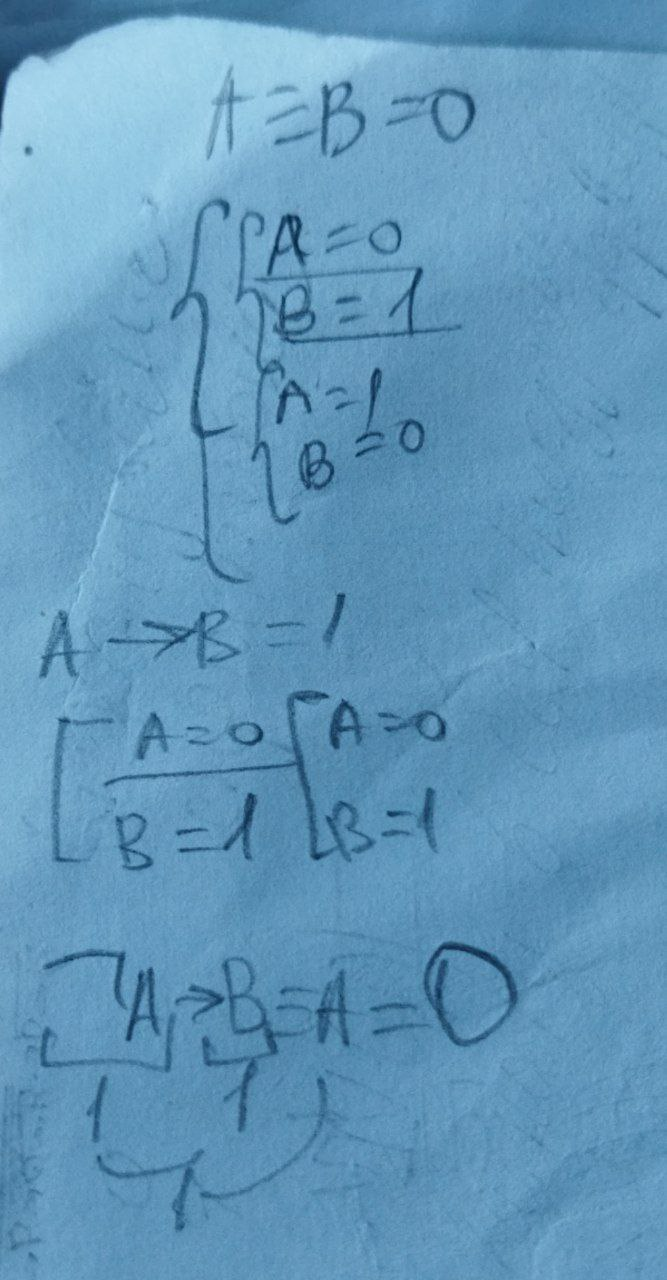 A ≡ B = 0
A = 0
B = 1
A = 1
B = 0
A → B = 1
A = 0 A = 0
B = 1 B = 1
¬A → B ≡ A = 0
1 1
1